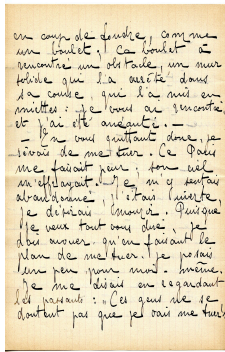 en coup de foudre, comme
un boulet. Ce boulet a
rencontré un obstacle, un mur
solide qui l'a arrêté dans
sa course, qui l'a mis en
miettes : Je vous ai rencontré
et j'ai été anéanti. -
En vous quittant donc, je
rêvais de me tuer. Ce Paris
me faisait peur ; son ciel
m'effrayait. Je m'y sentais
abandonné, j'étais inerte,
je désirais mourir. Puisque
je veux tout vous dire, je
dois avouer qu'en faisant le
plan de me tuer. je posais
un peu pour moi-même.
Je me disais en regardant
les passants : "Ces gens ne se
doutent pas que je vais me tuer"